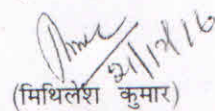 21/12/16
(मिथिलेश कुमार)